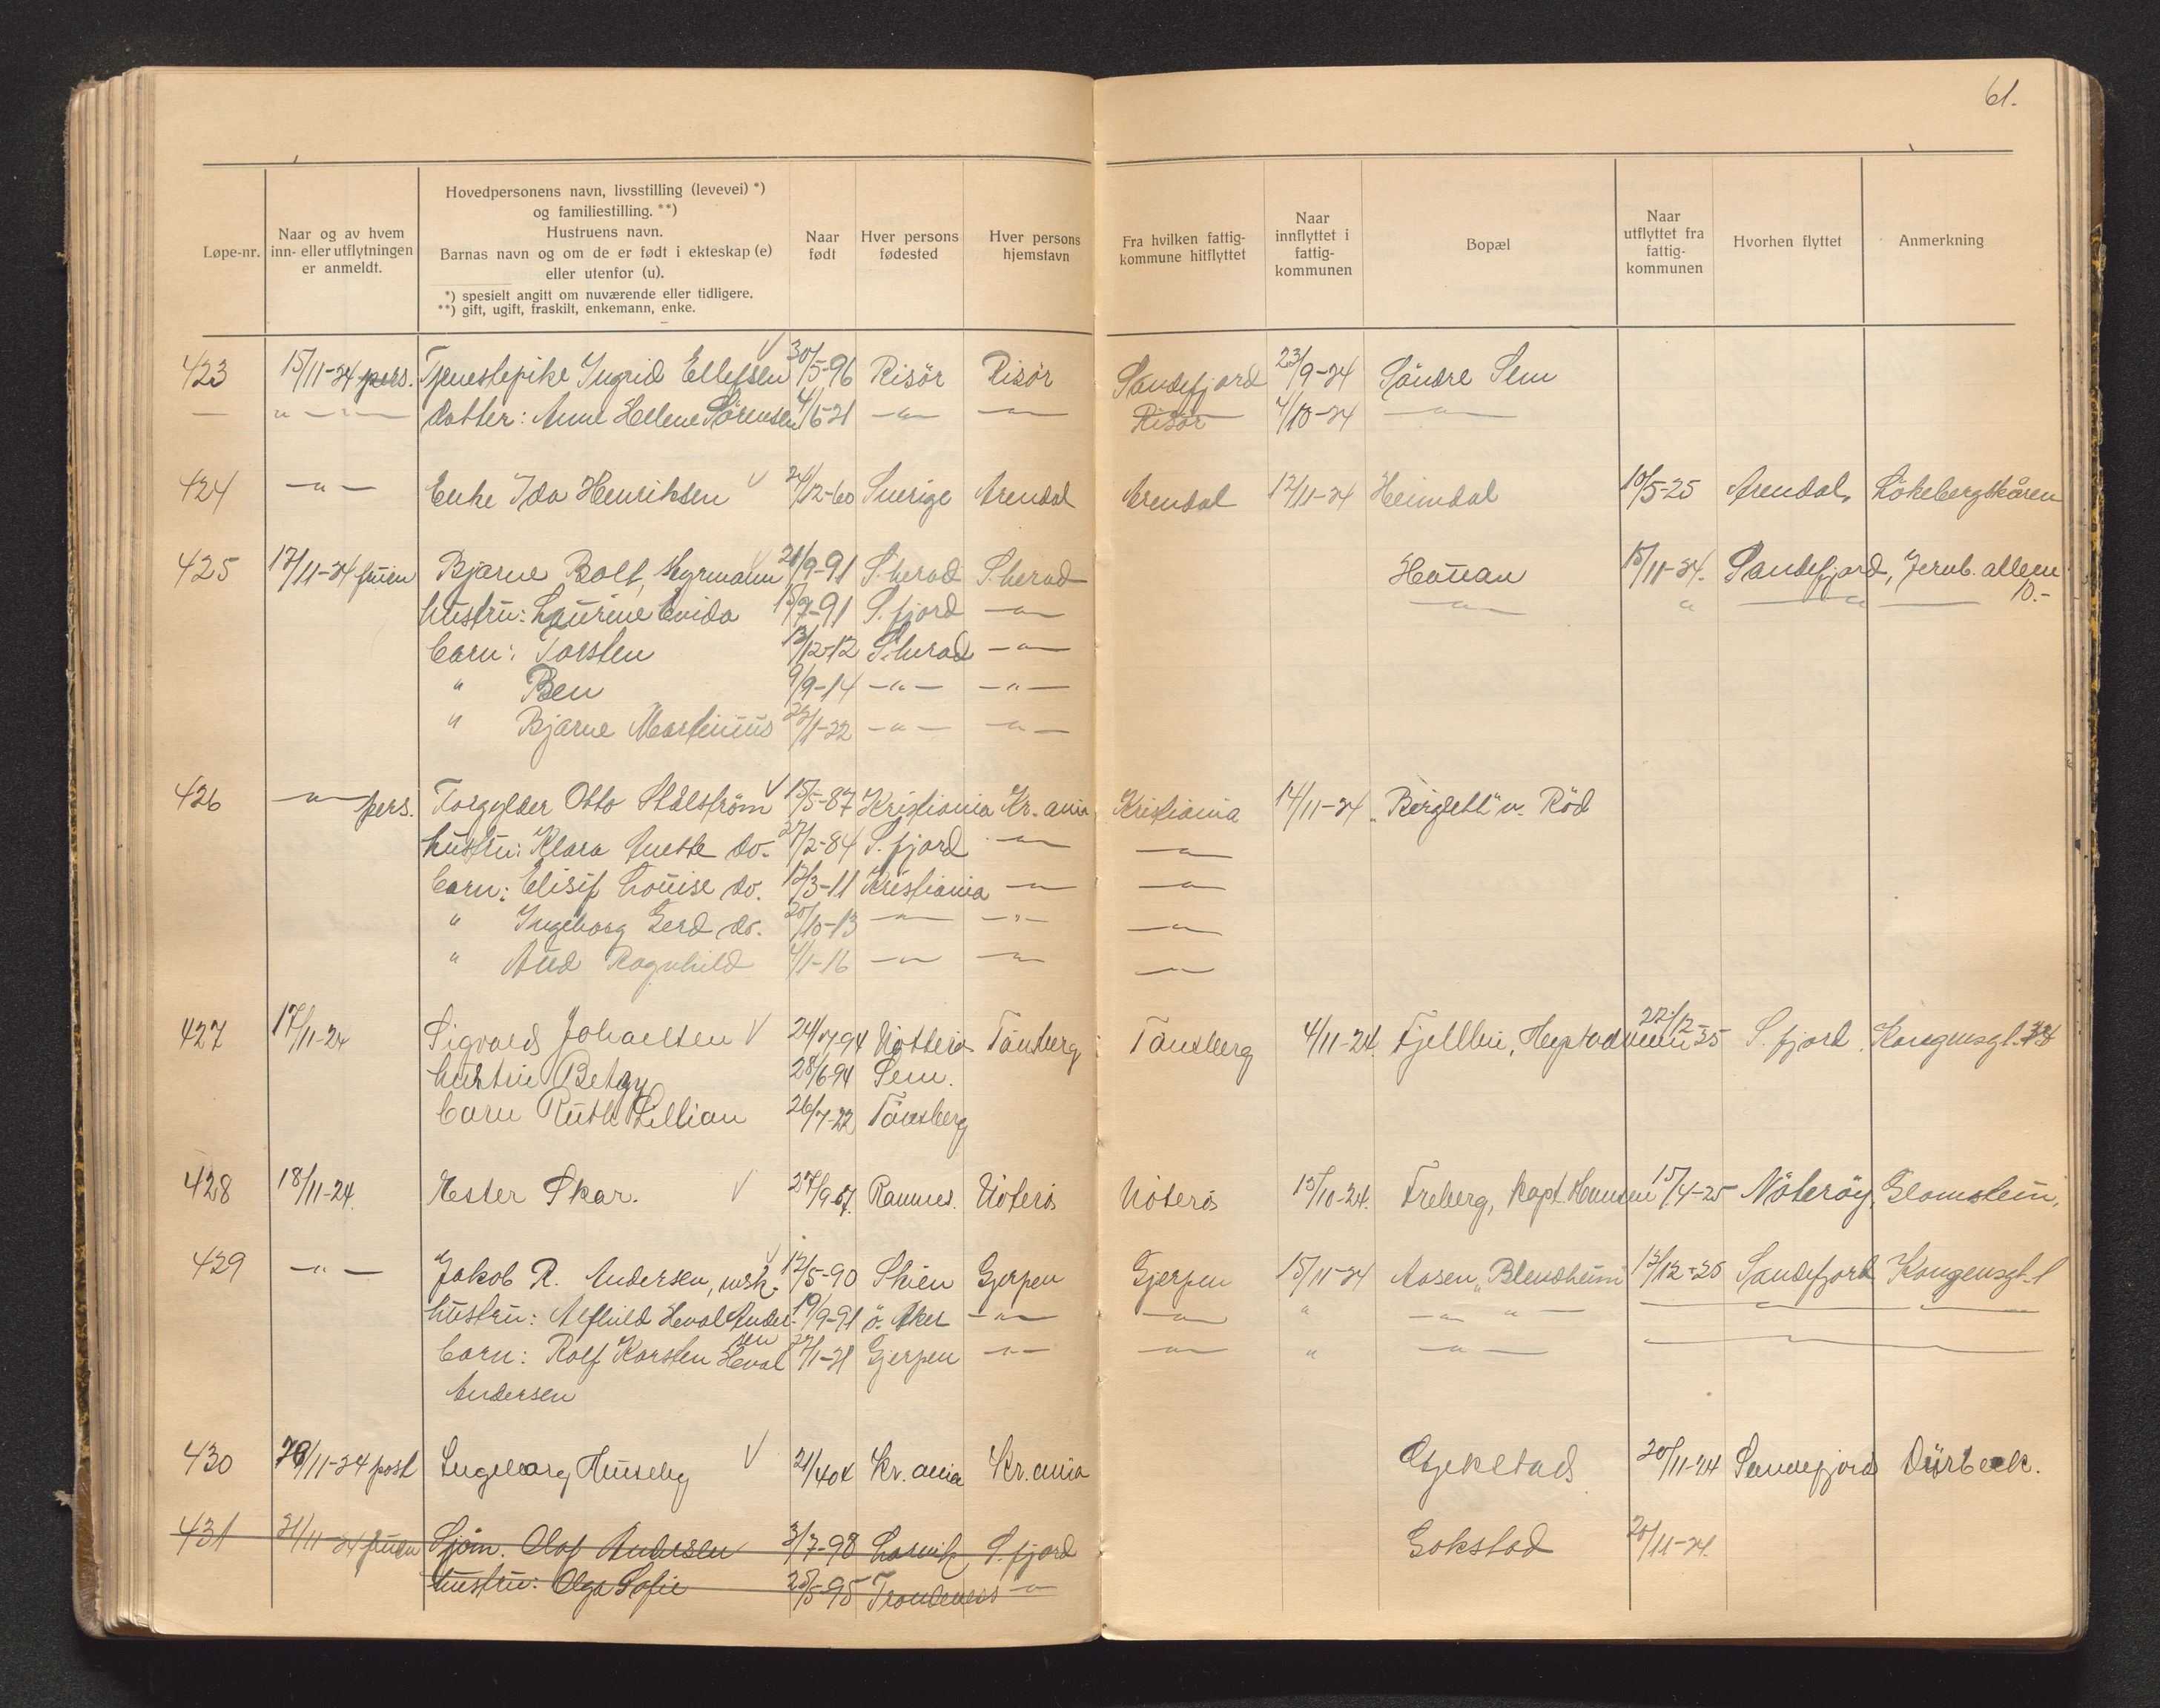 61.
Løpe-nr. | Naar og av hvem inn- eller utflytningen er anmeldt. | Hovedpersonens navn, livsstilling (levevei) *) og familiestilling. **) Hustruens navn. Barnas navn og om de er født i ekteskap (e) eller utenfor (u). *) spesielt angitt om nuværende eller tidligere. **) gift, ugift, fraskilt, enkemann, enke. | Naar født | Hver persons fødested | Hver persons hjemstavn | Fra hvilken fattig-kommune hitflyttet | Naar innflyttet i fattig-kommunen | Bopæl | Naar utflyttet fra fattig-kommunen | Hvorhen flyttet | Anmerkning
423 15/11-24 pers. Tjenestepike Ingrid Ellefsen 30/5-96 Risör Risör Sandefjord 23/9-24 Söndre Sem
— " — Datter: Anne Hellene Sörensen 4/6-21 — " — — " — Risör 4/10-24 — " —
424 — " — Enke Ida Henriksen 24/12-60 Sverige Arendal Arendal 12/11-24 Heimdal 10/5-25 Arendal, Lökebergskåren
425 17/11-24 fruen Bjarne Rolf Myrmann 21/9-91 S.herad S.herad Hauan 15/11-24. Sandefjord, Jernb. alleen 10.-
hustru: Laurine Evida 15/7-91 S.fjord — " — — " — " — " —
barn: Torsten 13/12-12 S.herad — " —
" Ben 9/9-14 — " — — " —
" Bjarne Martinius 22/1-22 — " — — " —
426 — " — pers. Forgylder Otto Stålström 15/5-87 Kristiania Kr.ania Kristiania 14/11-24 "Bergtett" v. Röd
hustru: Klara Aneste do. 27/2-84 S.fjord — " — — " —
barn: Elisif Louise do. 12/3-11 Kristiania — " — — " —
" Ingeborg Gerd do. 20/10-13 — " — — " — — " —
" Aud Ragnhild 4/1-16 — " — — " — — " —
427 17/11-24 Sigvald Johansen 24/4 94 Nötterö Tönsberg Tönsberg 4/11-24. Fjellhei, 22/12-25 S.fjord Kongensgt.
hustru Betzy 28/6 94 Sem.
barn Ruth Lillian 26/7-22 Tönsberg
428 18/11-24. Ester Skar. 27/9-07. Ramnes. Nöterö Nöterö 15/10-24. Freberg, Kapt. Hansen 15/4-25 Nöteröy,
429 — " — Jakob R. Andersen, 12/5-90 Skien Gjerpen Gjerpen 15/11-24 Aasen, "Blendheim" 13/12-25 Sandefjord Kongensgt. 1
hustru: Alfhild Heval Andersen 19/9-91 ö. Aker — " — — " — " — " —
barn: Rolf Karsten Heval 27/1-21 Gjerpen — " — — " — " — " —
Andersen
430 20/11-24 post Ingeborg Huseby 21/4 04 Kr.ania Kr.ania Gjekstad 20/11-24 Sandefjord Dürbeck.
431 21/11-24 fruen Sjöm. Olaf Andersen 3/7-98 Larvik S.fjord Gokstad 20/11-24.
hustru: Olga Sofie 25/5-95 Trondenes — " —